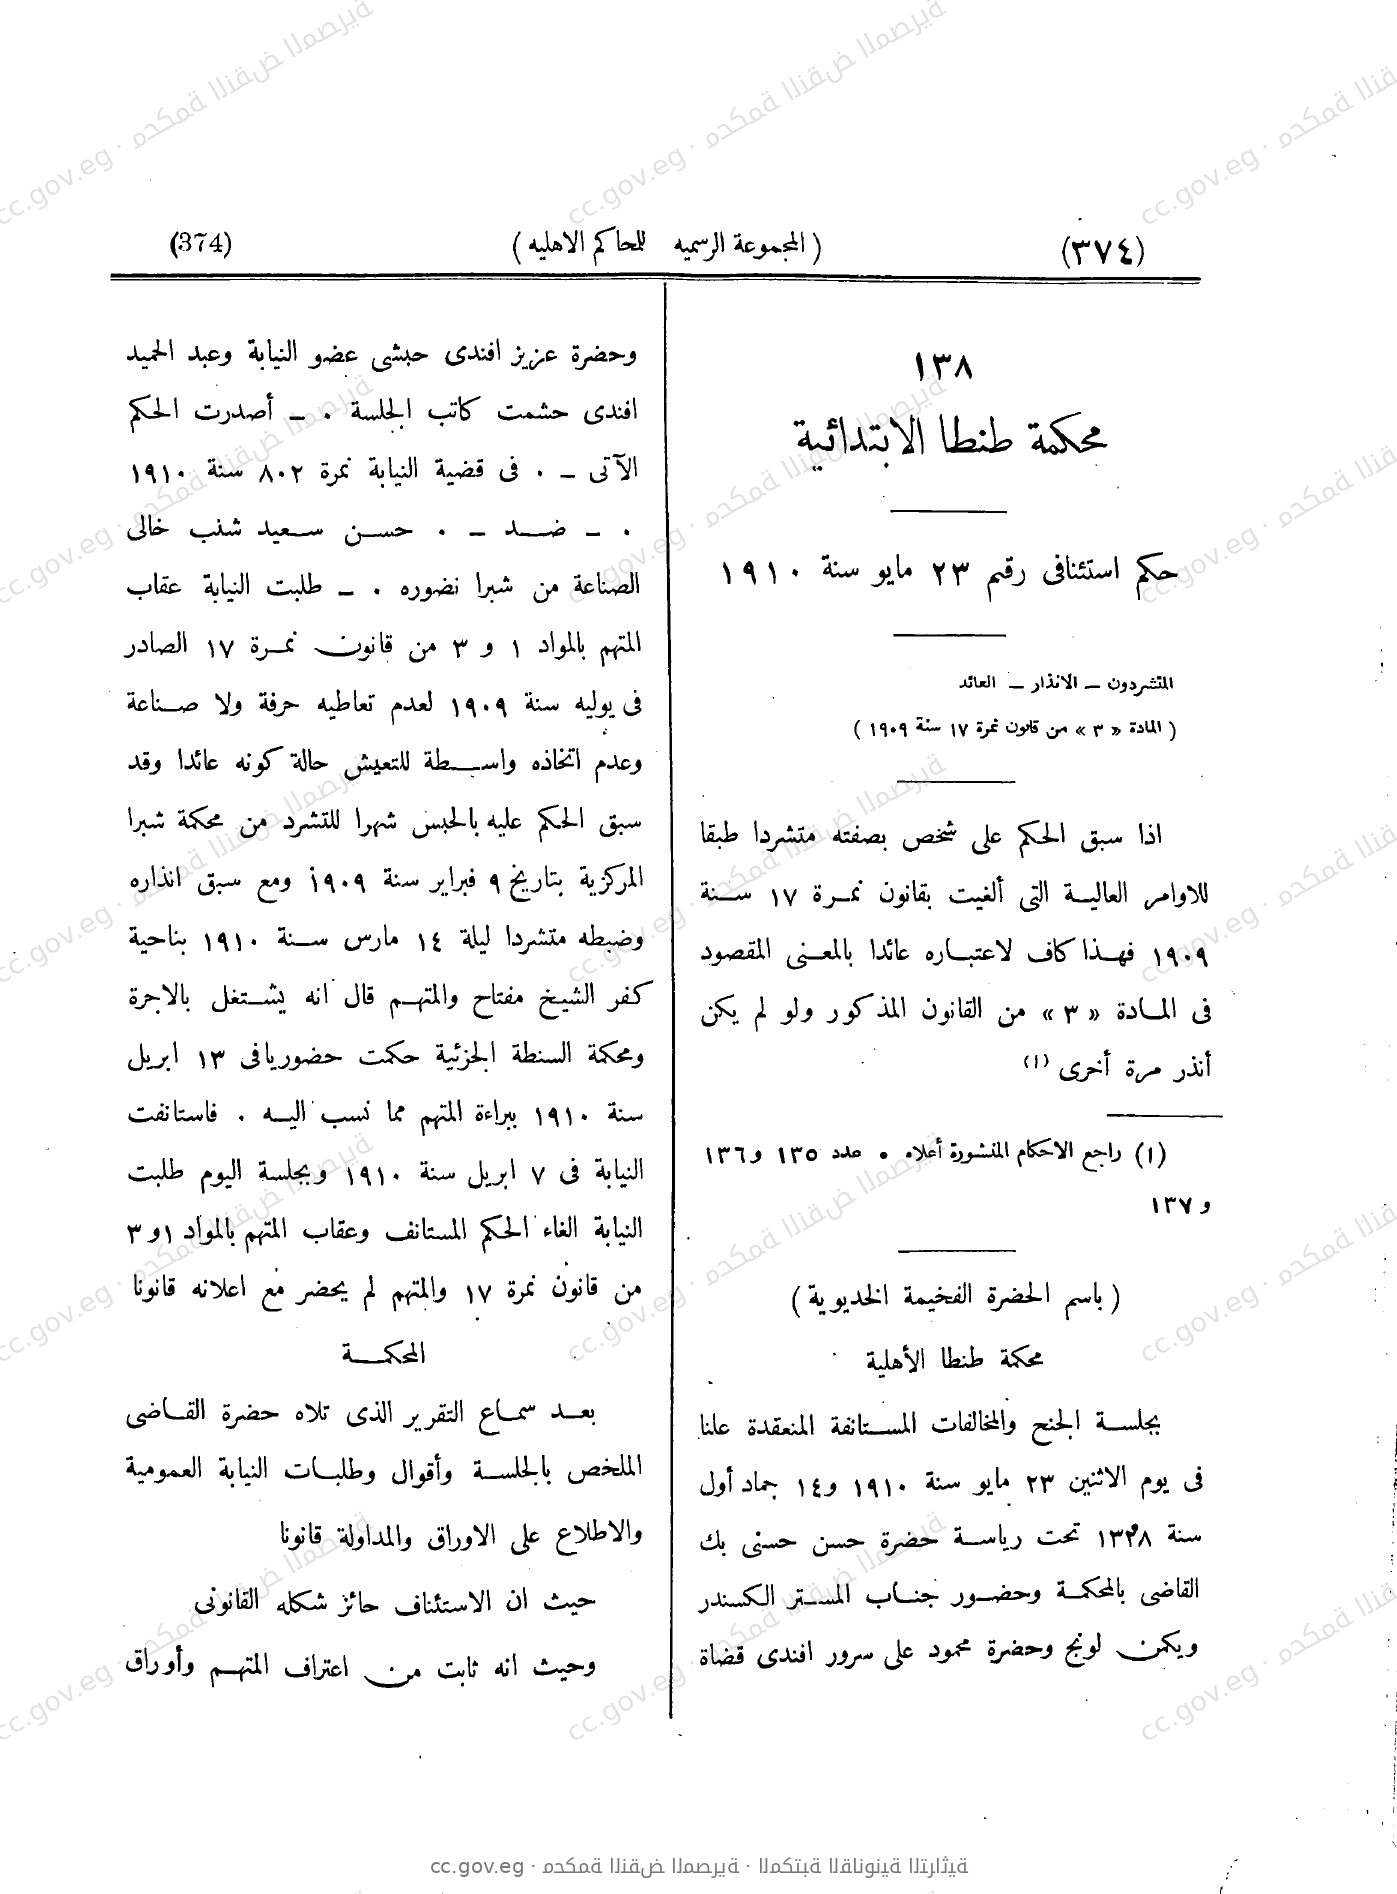 (٣٧٤)
( المجموعة الرسميه للحاكم الاهليه )
(374)
١٣٨
محكمة طنطا الابتدائية
حكم استئنافى رقم ٢٣ مايو سنة ١٩١٠
المتشردون – الانذار – العائد
( المادة « ٣ » من قانون نمرة ١٧ سنة ١٩٠٩ )
اذا سبق الحكم على شخص بصفته متشردا طبقا
للاوامر العالية التى ألغيت بقانون نمرة ١٧ سنة
١٩٠٩ فهذا كاف لاعتباره عائدا بالمعنى المقصود
فى المادة « ٣ » من القانون المذكور ولو لم يكن
أنذر مرة أخرى (١)
(١) راجع الاحكام المنشورة أعلاه • عدد ١٣٥ و١٣٦
و ١٣٧
( باسم الحضرة الفخيمة الخديوية )
محكمة طنطا الأهلية
بجلسة الجنح والمخالفات المستانفة المنعقدة علنا
فى يوم الاثنين ٢٣ مايو سنة ١٩١٠ و١٤ جماد أول
سنة ١٣٢٨ تحت رياسة حضرة حسن حسنى بك
القاضى بالمحكمة وحضور جناب المستر الكسندر
ويكمن لونج وحضرة محمود على سرور افندى قضاة
وحضرة عزيز افندى حبشى عضو النيابة وعبد الحميد
افندى حشمت كاتب الجلسة . – أصدرت الحكم
الآتى – . فى قضية النيابة نمرة ٨٠٢ سنة ١٩١٠
. – ضد – . حسن سعيد شنب خالى
الصناعة من شبرا نضوره . – طلبت النيابة عقاب
المتهم بالمواد ١ و ٣ من قانون نمرة ١٧ الصادر
فى يوليه سنة ١٩٠٩ لعدم تعاطيه حرفة ولا صناعة
وعدم اتخاذه واسطة للتعيش حالة كونه عائدا وقد
سبق الحكم عليه بالحبس شهرا للتشرد من محكمة شبرا
المركزية بتاريخ ٩ فبراير سنة ١٩٠٩ ومع سبق انذاره
وضبطه متشردا ليلة ١٤ مارس سنة ١٩١٠ بناحية
كفر الشيخ مفتاح والمتهم قال انه يشتغل بالاجرة
ومحكمة السنطة الجزئية حكمت حضوريا فى ١٣ ابريل
سنة ١٩١٠ ببراءة المتهم مما نسب اليه . فاستانفت
النيابة فى ٧ ابريل سنة ١٩١٠ وبجلسة اليوم طلبت
النيابة الغاء الحكم المستانف وعقاب المتهم بالمواد ١و ٣
من قانون نمرة ١٧ والمتهم لم يحضر مع اعلانه قانونا
المحكمة
بعد سماع التقرير الذى تلاه حضرة القاضى
الملخص بالجلسة وأقوال وطلبات النيابة العمومية
والاطلاع على الاوراق والمداولة قانونا
حيث ان الاستئناف حائز شكله القانونى
وحيث انه ثابت من اعتراف المتهم وأوراق
cc.gov.eg · محكمة النقض المصرية · المكتبة القانونية التراثية